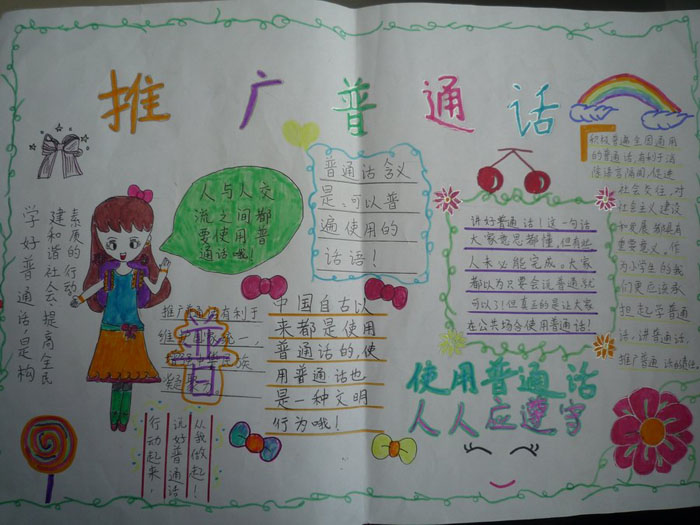 推广普通话
学好普通话，是构
建和谐社会、提高全民
素质的行动。
人与人交
流之间都
要使用普
通话哦！
普通话含义
是，可以普
遍使用的
话语！
讲好普通话！这一句话
大家也许都懂，但有些
人未必能完成。大家
都以为只要会说普通就
可以了！但真正的是让大家
在公共场合使用普通话！
积极普通全国通用
的普通话，有利于消
除语言隔阂，促进
社会交往，对
社会主义建设
和发展都具有
重要意义。作
为小学生的我
们更应该承
担起学普通
话，讲普通话，
推广普通话的责任。
推广普通话有利于
普
中国自古以
来都是使用
普通话的，使
用普通话也
是一种文明
行为哦！
从我做起！
说好普通话
行动起来，
使用普通话
人人应遵守